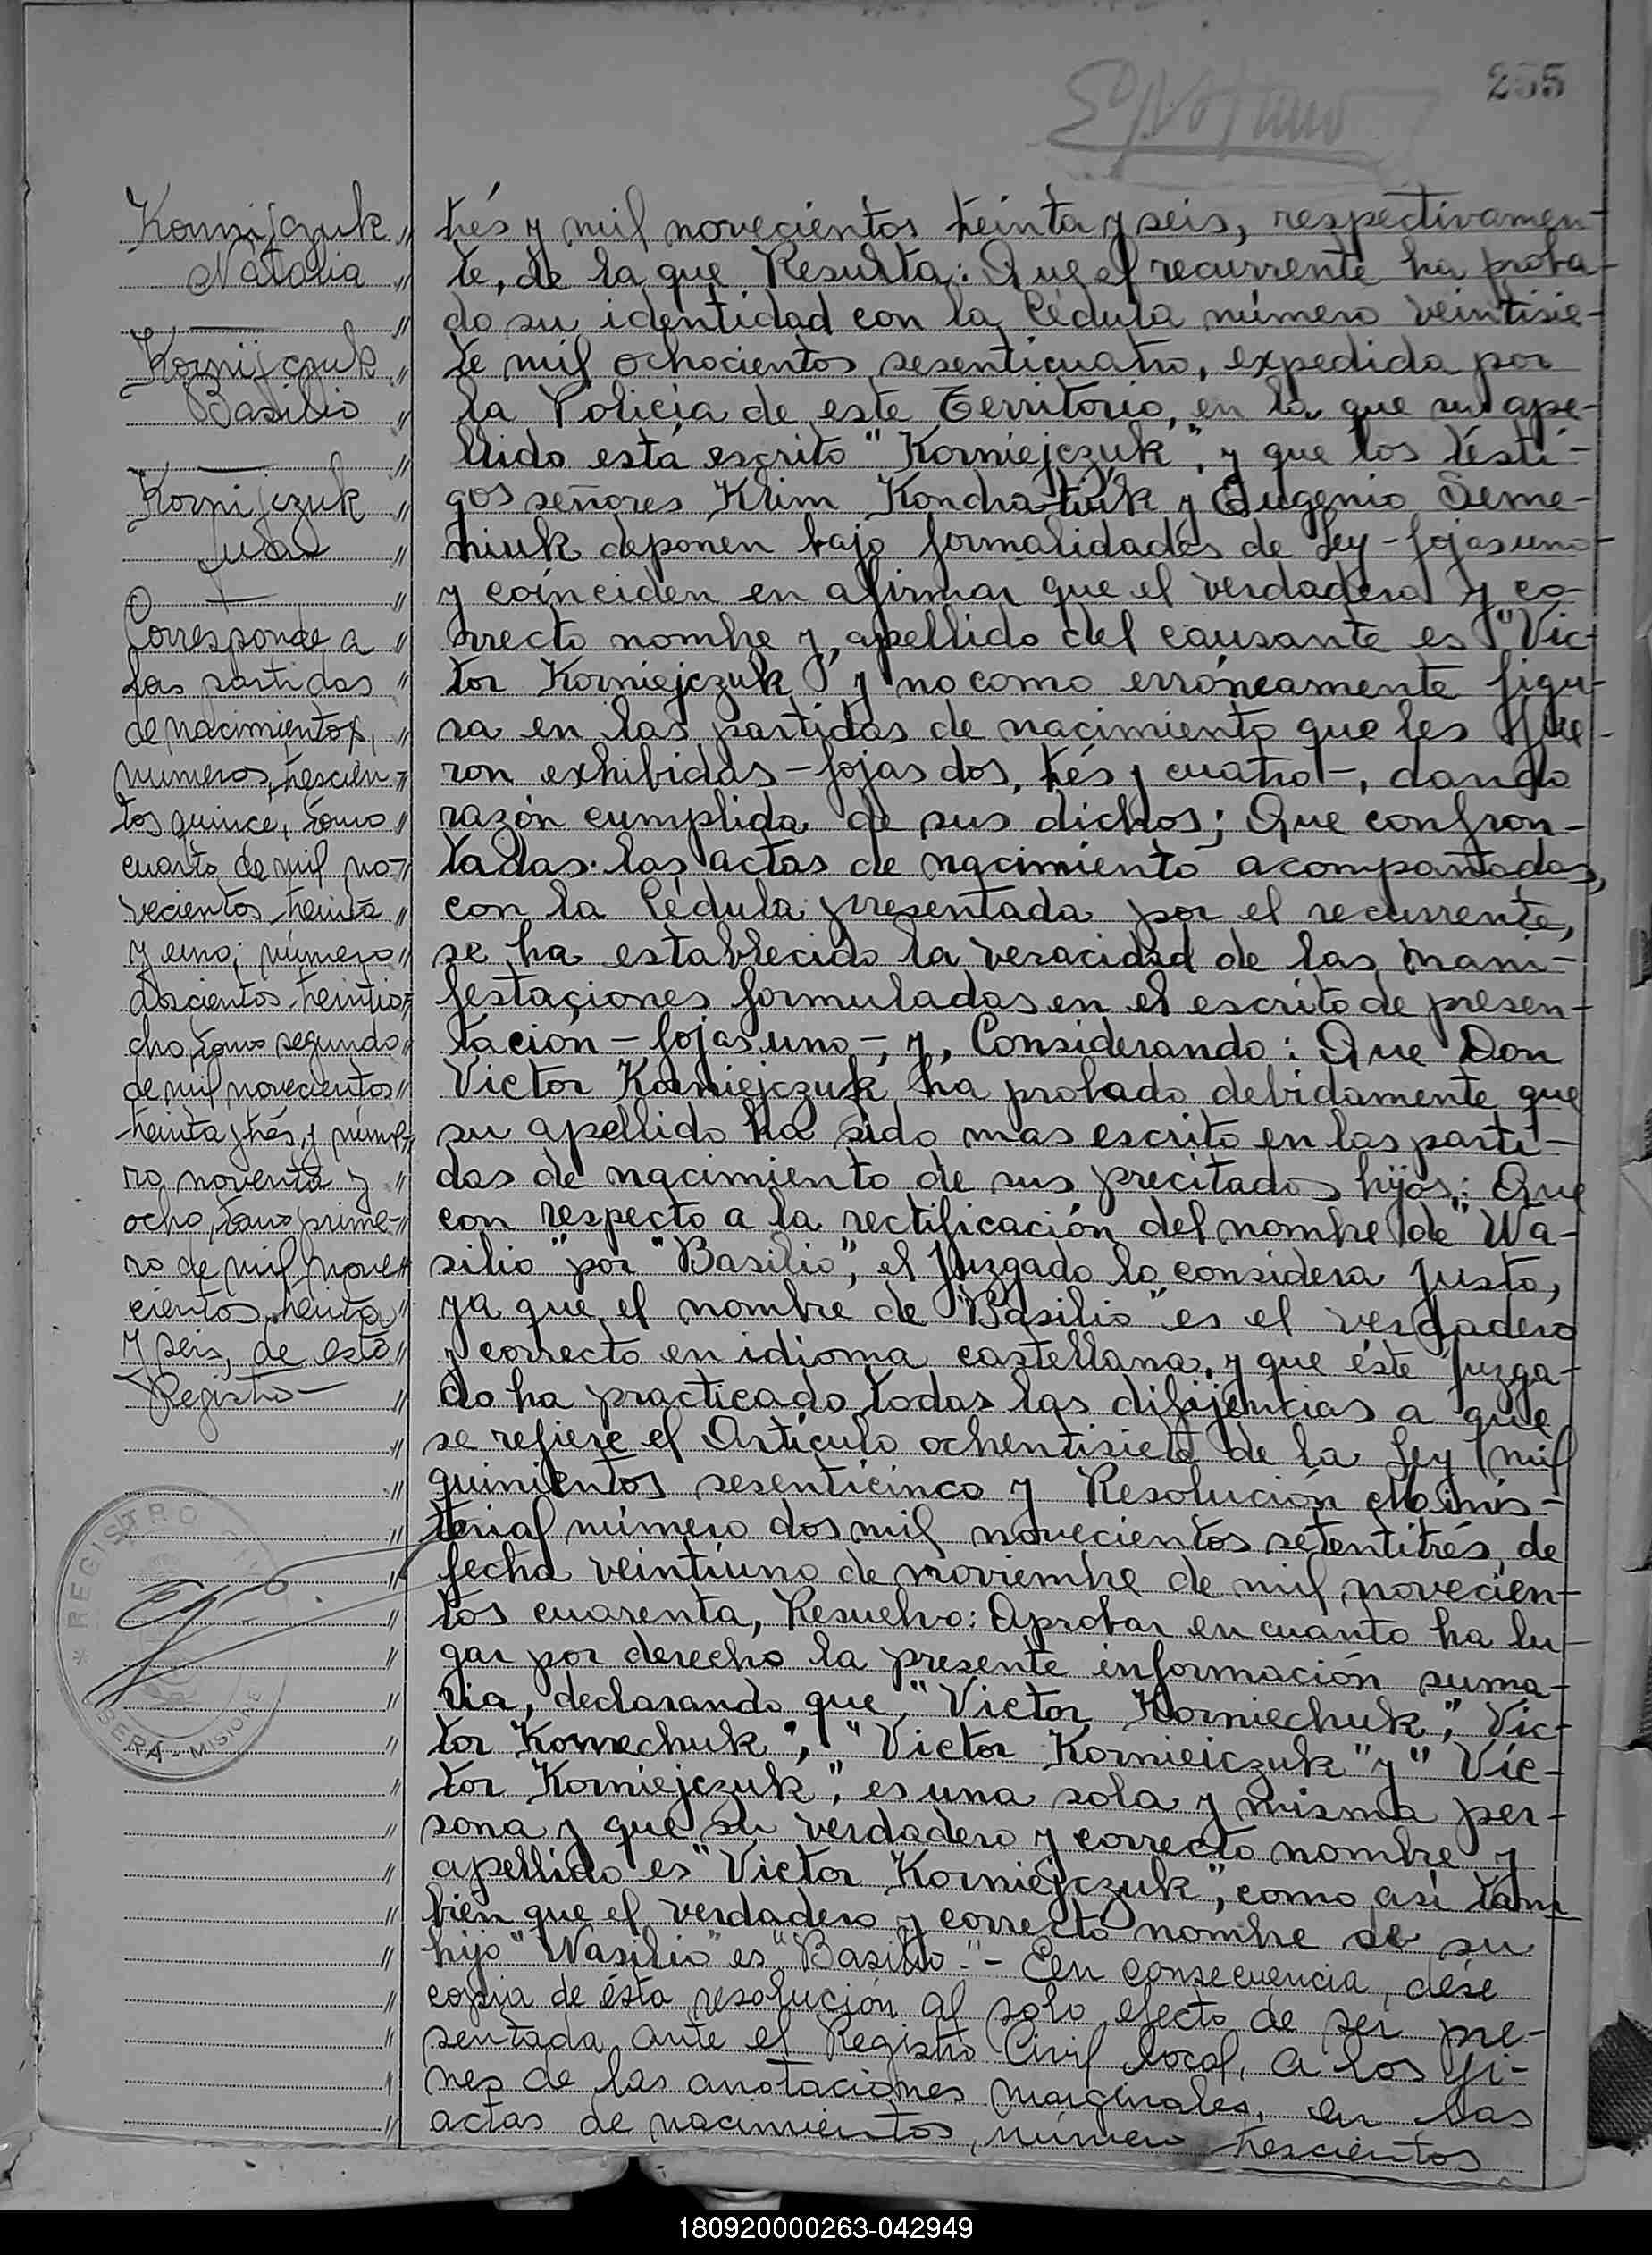 255
Kornijczuk
Natalia
Kornijczuk
Basilio
Kornijczuk
Juan
Corresponde a
las partidas
de nacimientos,
numeros, trescien-
tos quince, tomo
cuarto de mil no-
vecientos treinta
y uno; número
doscientos treintio-
cho, tomo segundo
de mil novecientos
treinta y trés, y núme-
ro noventa y
ocho, tomo prime-
ro de mil nove-
cientos treinta
y seis, de este
Registro—
trés y mil novecientos treinta y seis, respectivamen-
te, de la que Resulta: Que el recurrente ha proba-
do su identidad con la Cédula número veintisie-
te mil ochocientos sesenticuatro, expedida por
la Policía de este Territorio, en la que su ape-
llido está escrito "Korniejczuk", y que los testi-
gos señores Klim Kondratiuk y Eugenio Seme-
niuk deponen bajo formalidades de Ley - fojas uno -
y coinciden en afirmar que el verdadero y co-
rrecto nombre y apellido del causante es "Vic-
tor Korniejczuk" y no como erróneamente figu-
ra en las partidas de nacimiento que les fue-
ron exhibidas - fojas dos, trés y cuatro -, dando
razón cumplida de sus dichos; Que confron-
tadas las actas de nacimiento acompañadas,
con la Cédula presentada por el recurrente,
se ha establecido la veracidad de las mani-
festaciones formuladas en el escrito de presen-
tación - fojas uno -, y, Considerando: Que Don
Victor Korniejczuk ha probado debidamente que
su apellido ha sido mas escrito en las parti-
das de nacimiento de sus precitados hijos; Que
con respecto a la rectificación del nombre de "Wa-
silio" por "Basilio", el Juzgado lo considera justo,
ya que el nombre de "Basilio" es el verdadero
y correcto en idioma castellana, y que éste Juzga-
do ha practicado todas las dilijencias a que
se refiere el Artículo ochentisiete de la Ley mil
quinientos sesenticinco y Resolución Minis-
terial número dos mil novecientos setentitrés, de
fecha veintiuno de noviembre de mil novecien-
tos cuarenta, Resuelvo: Aprobar en cuanto ha lu-
gar por derecho la presente información suma-
ria, declarando que "Victor Korniechuk", "Vic-
tor Kornechuk", "Victor Kornieiczuk" y "Vic-
tor Korniejczuk", es una sola y misma per-
sona y que su verdadero y correcto nombre y
apellido es "Victor Korniejczuk", como así tam-
bién que el verdadero y correcto nombre de su
hijo "Wasilio" es "Basilio".- En consecuencia, dése
copia de ésta resolución al solo efecto de ser pre-
sentada ante el Registro Civil local, a los fi-
nes de las anotaciones marginales, en las
actas de nacimientos, número trescientos
REGISTRO
BERÁ - MISIONE
180920000263-042949